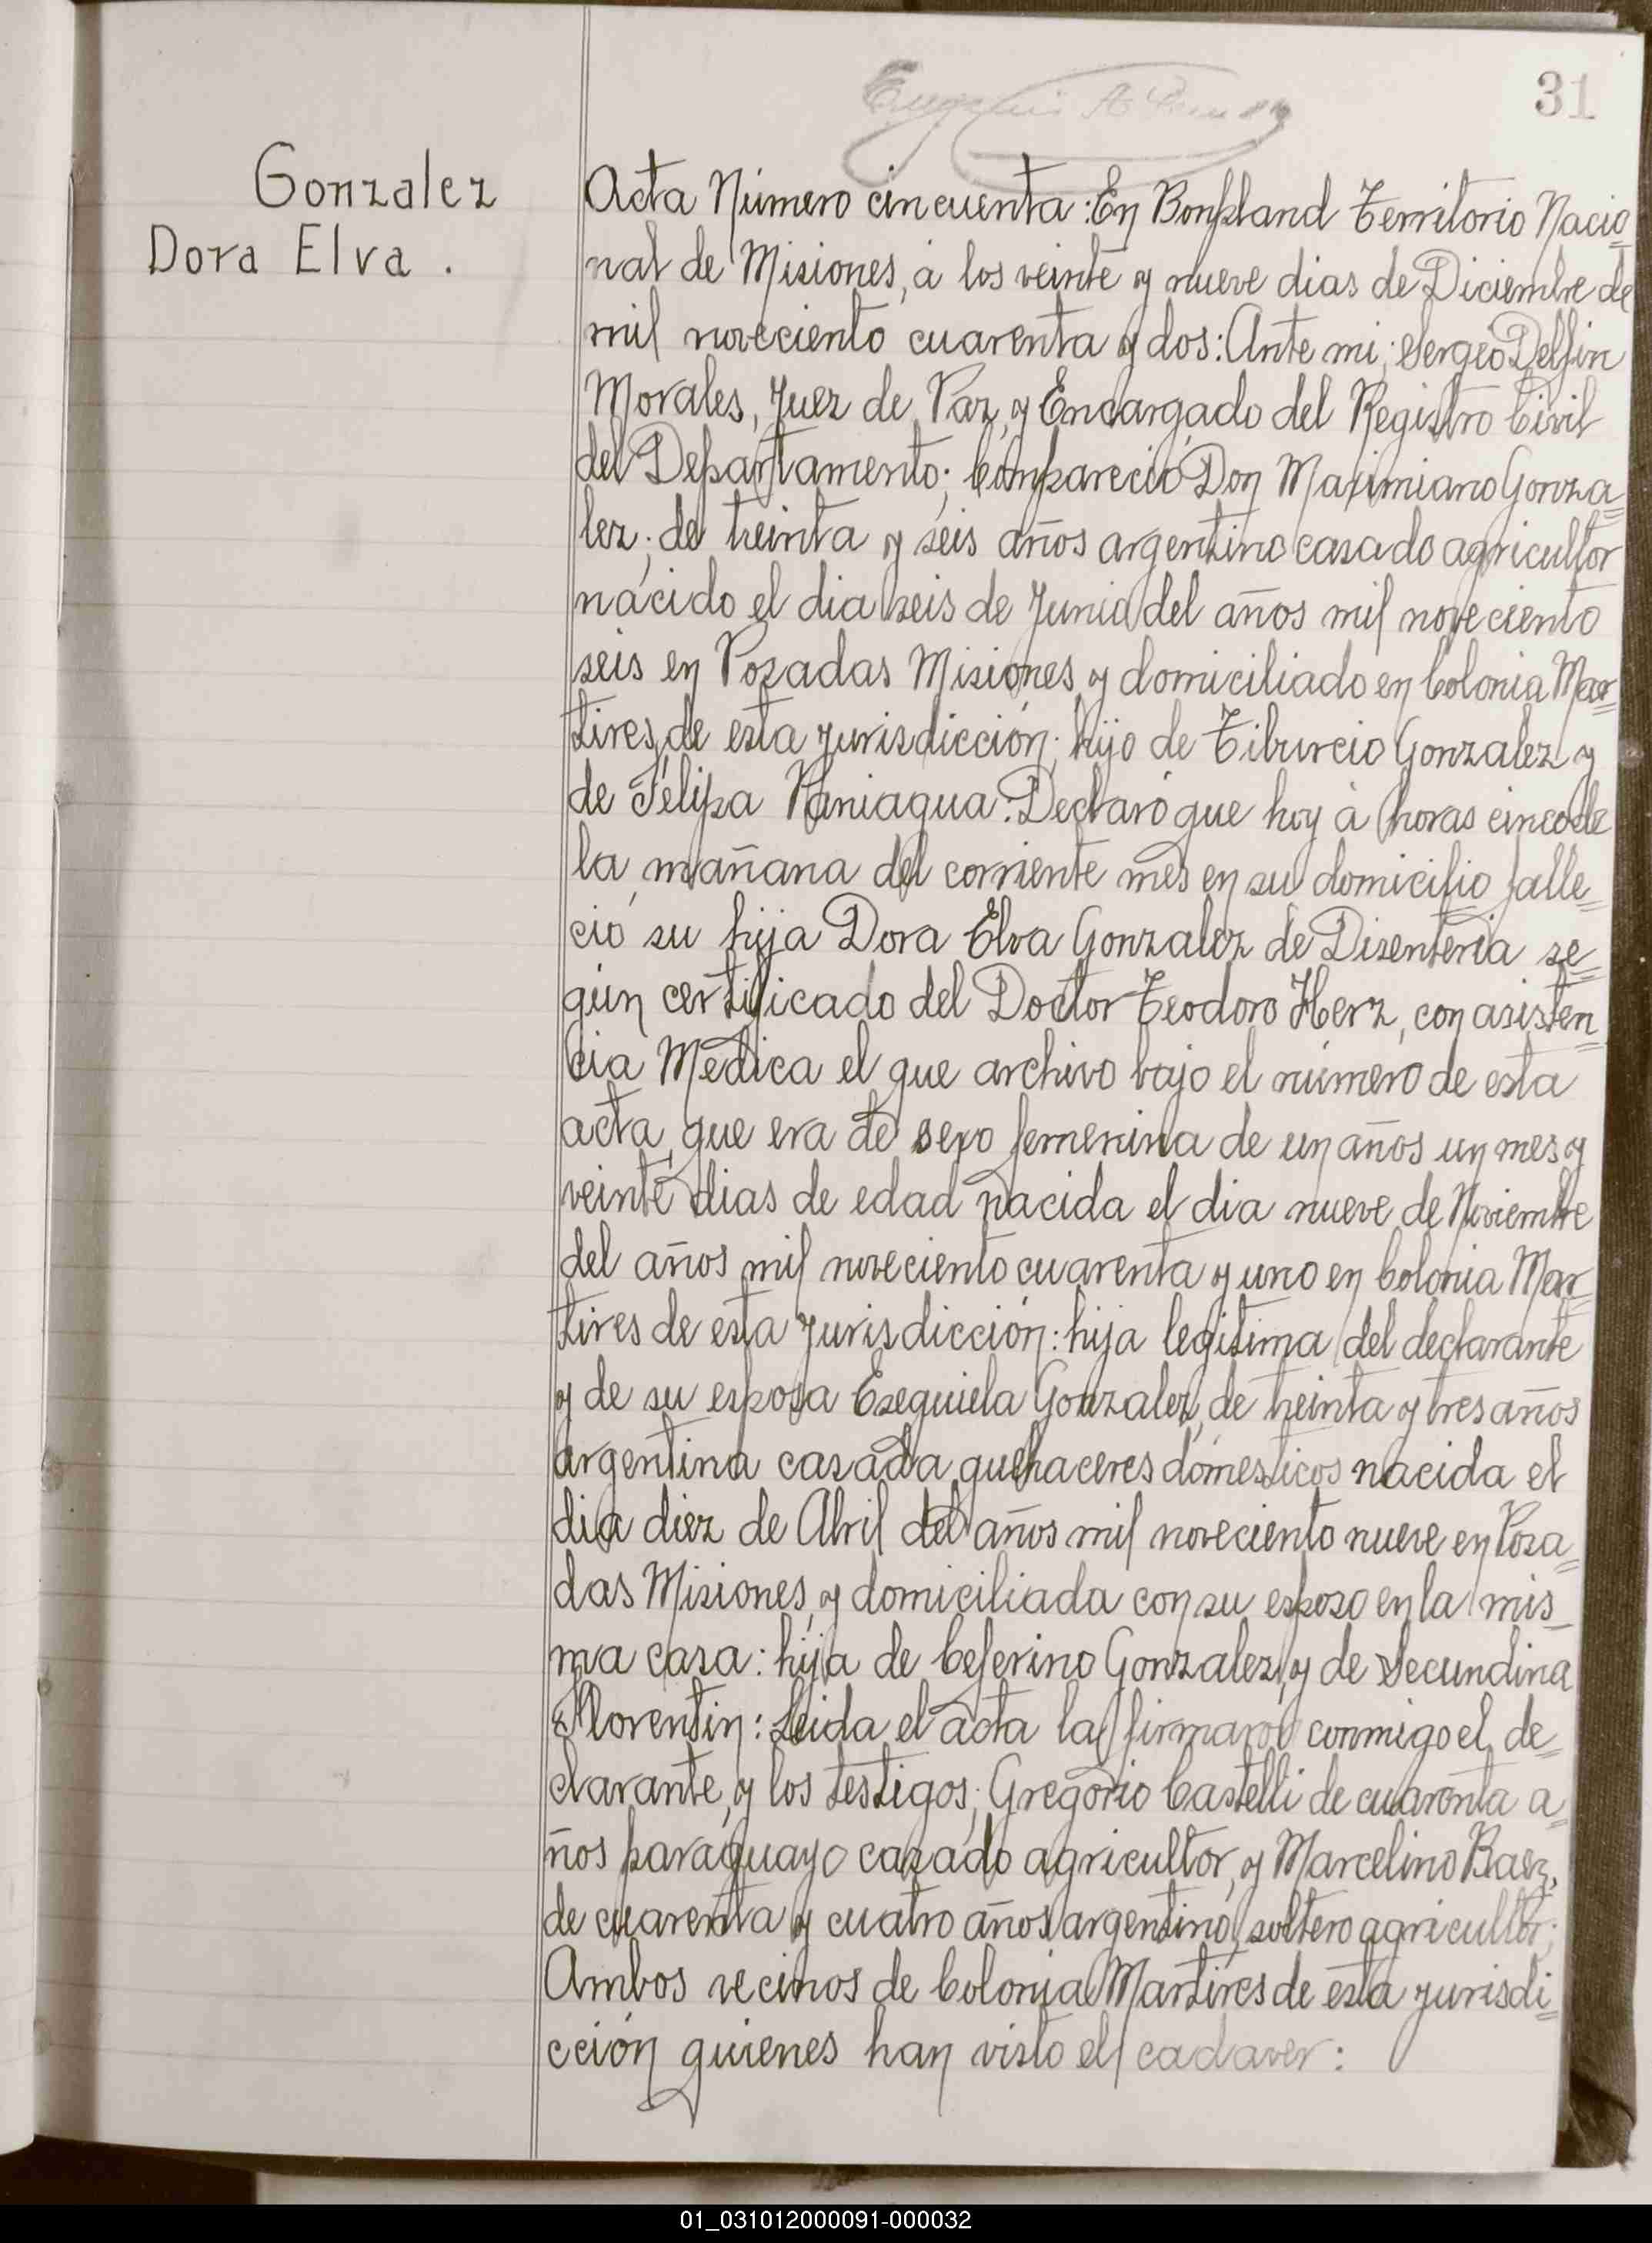 31
Gonzalez
Dora Elva .
Acta Número cincuenta : En Bonpland Territorio Nacio=
nal de Misiones, á los veinte y nueve dias de Diciembre de
mil noveciento cuarenta y dos : Ante mi ; Sergio Delfin
Morales, Juez de Paz, y Encargado del Registro Civil
del Departamento ; Compareció Don Maximiano Gonza=
lez ; de treinta y seis años argentino casado agricultor
nacido el dia seis de Junio del años mil noveciento
seis en Posadas Misiones y domiciliado en Colonia Mar=
tires, de esta jurisdicción ; hijo de Tiburcio Gonzalez y
de Felipa Paniagua : Declaró que hoy á horas cinco de
la mañana del corriente mes en su domicilio falle=
ció su hija Dora Elva Gonzalez de Disenteria se=
gún certificado del Doctor Teodoro Herz, con asisten=
cia Medica el que archivo bajo el número de esta
acta, que era de sexo femenina de un años un mes y
veinte dias de edad nacida el dia nueve de Noviembre
del años mil noveciento cuarenta y uno en Colonia Mar=
tires de esta jurisdicción : hija legitima del declarante
y de su esposa Esequiela Gonzalez, de treinta y tres años
argentina casada quehaceres domesticos nacida el
dia diez de Abril del años mil noveciento nueve en Posa=
das Misiones, y domiciliada con su esposo en la mis_
ma casa : hija de Ceferino Gonzalez, y de Secundina
Florentin : Leida el acta la firmaron conmigo el de=
clarante, y los testigos ; Gregorio Castelli de cuarenta a=
ños paraguayo casado agricultor, y Marcelino Baez,
de cuarenta y cuatro años argentino, soltero agricultor ;
Ambos vecinos de Colonia Martires de esta jurisdi=
cción quienes han visto el cadaver :
01_031012000091-000032